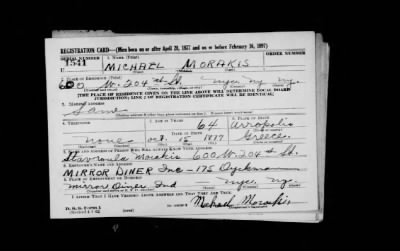 REGISTRATION CARD—(Men born on or after April 28, 1877 and on or before February 16, 1897)
SERIAL NUMBER 1. NAME (Print) ORDER NUMBER
U 1541 MICHAEL MORAKIS
2. PLACE OF RESIDENCE (Print)
600 W. 204th St. nyc ny ny.
[THE PLACE OF RESIDENCE GIVEN ON THE LINE ABOVE WILL DETERMINE LOCAL BOARD
JURISDICTION; LINE 2 OF REGISTRATION CERTIFICATE WILL BE IDENTICAL]
3. MAILING ADDRESS
Same
4. TELEPHONE 5. AGE IN YEARS 6. PLACE OF BIRTH
64
DATE OF BIRTH
none Oct. 15 1877 Greece
7. NAME AND ADDRESS OF PERSON WHO WILL ALWAYS KNOW YOUR ADDRESS
Stavroula Morakis 600 W. 204th St.
8. EMPLOYER'S NAME AND ADDRESS
MIRROR DINER Inc - 175 Dyckman
9. PLACE OF EMPLOYMENT OR BUSINESS
mirror Diner Ind nyc. ny.
I AFFIRM THAT I HAVE VERIFIED ABOVE ANSWERS AND THAT THEY ARE TRUE.
Michael Morakis